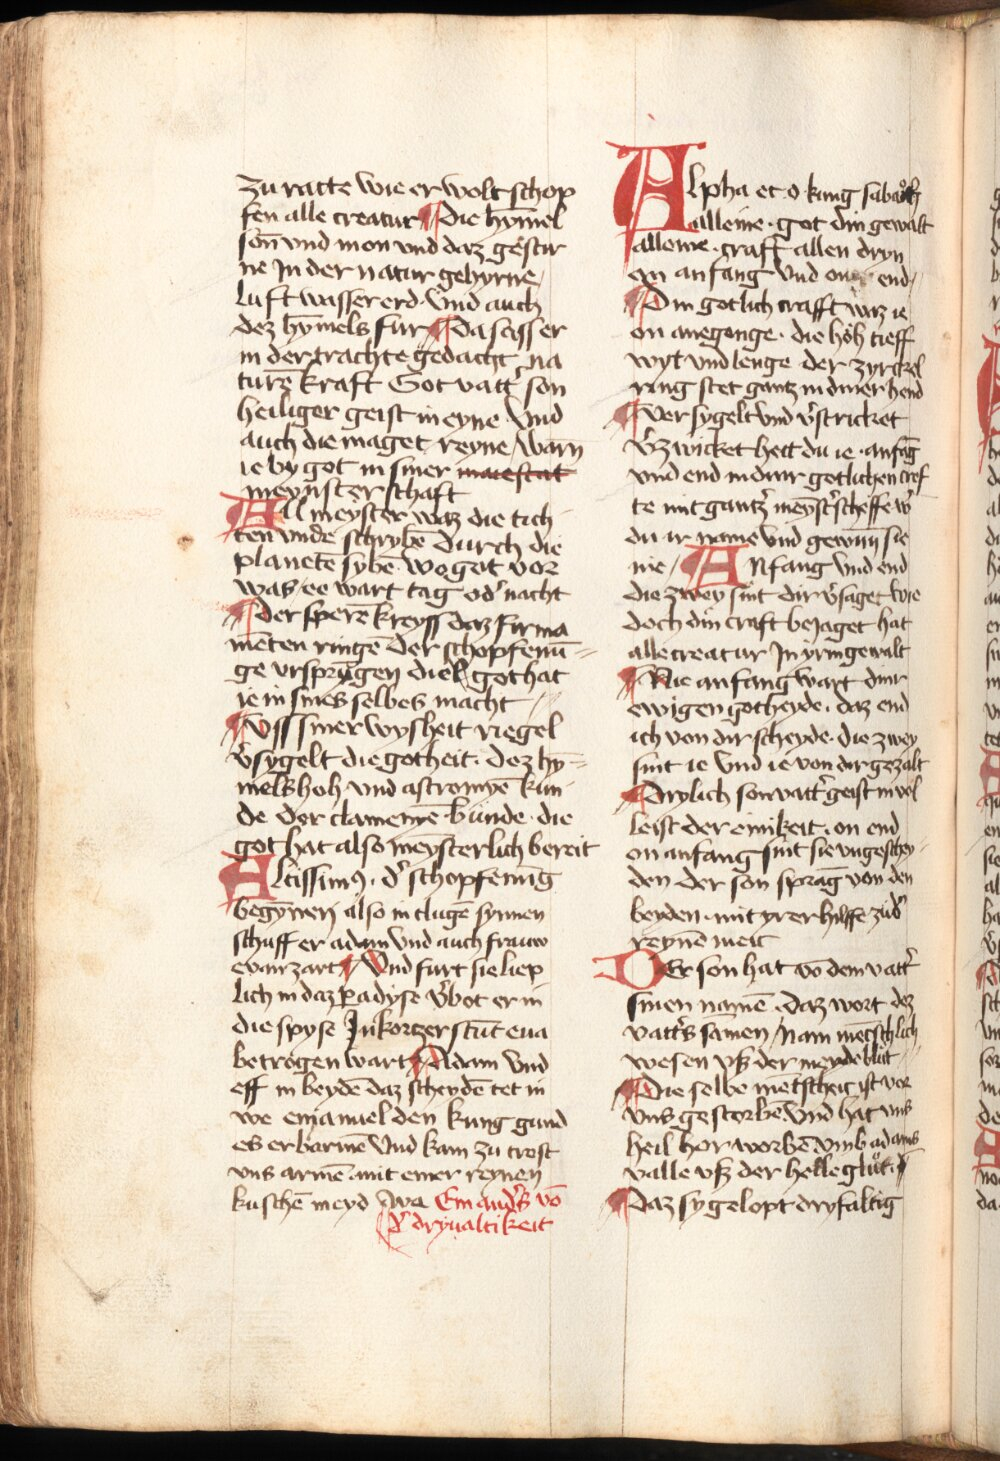 zu ratte wie er wolt schop
fen alle creatur ¶ Die hȳmel
son vnd mon vnd daz gestir
ne In der natur gehyrne /
Luft wasser erd · Vnd auch
dez hȳmels fur ¶ Da sass er
in der trachte gedacht na
turē kraft Got vatt' son
heiliger geist in eyne Vnd
auch die maget reyne / Warn
ie by got in siner maiestat
meynster schaft
All meyster waz die tich
ten vnde schrybē durch die
planetē sybē · wo got vor
was / ee wart tag od' nacht
¶ Der sperē kreyss daz firma
mēten ringē der schopfenū =
ge vrsprūgen die got hat
ie in sines selbes macht
¶ Vss siner wysheit riegel
v̄sygelt die gotheit · dez hy =
mels hoh vnd astromyē kun
de der clamenīe bünde · die
got hat also meysterlich bereit
Altissim9 · d' schopfenūg
begȳnen also in clugē synnen
schuff er adam Vnd auch frauw
evan zart ¶ Vnd furt sie liep
lich in daz ꝑadyse v̄bot er in
die spyse In kortzer stūt eua
betrogen wart ¶ Adam Vnd
eff in beydē daz scheydē tet in
we emanuel den kung gund
es erbarmē Vnd kam zu trost
vns armē · mit einer reynen
kuschē meyd Ave Ein and's vō
d' dryualtikeit
Alpha et o kung sabaoth
alleine · got din gewalt
alleine · graft allen dryn
on anfang Vnd on end /
¶ Din gotlich crafft waz ie
on anegenge · die höh tieff
wyt vnd lenge der zyrckel
ring stet gantz in diner hend
¶ Versygelt vnd v̄stricket
v̄zwicket heit du ie · anfāg
vnd end in diner gotlichen cref
te mit gantz' meyst'scheffe w'
du ir name vnd gewūn sie
nie / Anfang Vnd end
die zwey sint dir v̄saget wie
doch din craft bejaget hat
alle creatur In yrin gewalt
¶ Nie anfang wart diner
ewigen gotheyde · daz end
ich von dir scheyde · die zwey
sint ie Vnd ie von dir gezalt
¶ Drylich son vatt' geist in vol
leist der einikeit · on end
on anfang sint sie vngeschey
den der son sprāg von den
beyden · mit yrer hilffe zu d'
reynē meit
Der son hat vō dem vatt'
sinen namē · daz wort dez
vatt's samen / Nam mētschlich
wesen vß der meyde blüt
¶ Die selbe mētscheit ist vor
vns gestorbē Vnd hat vns
heil herworbē Vmb adams
valle vß der helle gluͦt ·
¶ Daz sy gelopt dryfaltig